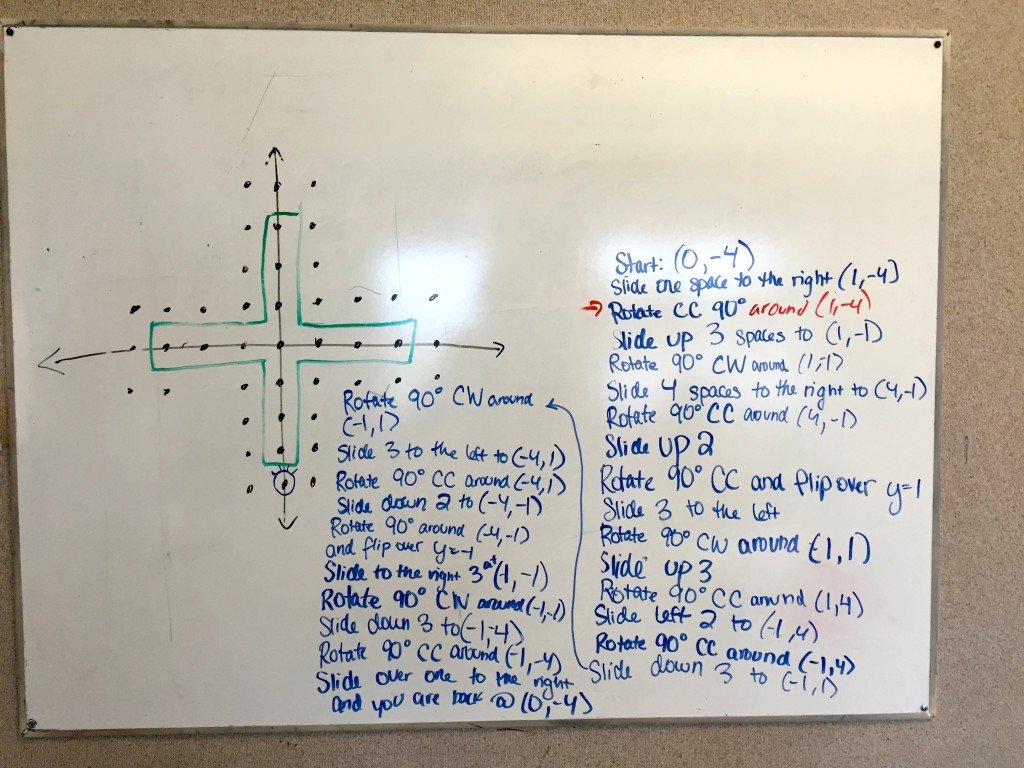 Start: (0,-4)
Slide one space to the right (1,-4)
→ Rotate CC 90° around (1,-4)
Slide up 3 spaces to (1,-1)
Rotate 90° CW around (1,-1)
Slide 4 spaces to the right to (4,-1)
Rotate 90° CC around (4,-1)
Slide up 2
Rotate 90° CC and flip over y=1
Slide 3 to the left
Rotate 90° CW around (1,1)
Slide up 3
Rotate 90° CC around (1,4)
Slide left 2 to (-1,4)
Rotate 90° CC around (-1,4)
Slide down 3 to (-1,1)
Rotate 90° CW around
(-1,1)
Slide 3 to the left to (-4,1)
Rotate 90° CC around (-4,1)
Slide down 2 to (-4,-1)
Rotate 90° around (-4,-1)
and flip over y=-1
Slide to the right 3 at (-1,-1)
Rotate 90° CW around (-1,-1)
Slide down 3 to (-1,-4)
Rotate 90° CC around (-1,-4)
Slide over one to the right
and you are back @ (0,-4)